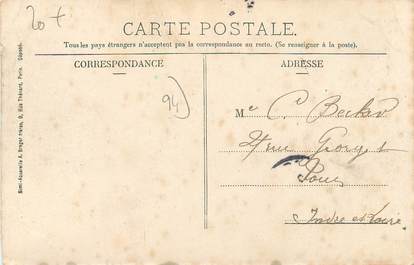 20 +
CARTE POSTALE.
Tous les pays étrangers n'acceptent pas la correspondance au recto. (Se renseigner à la poste).
CORRESPONDANCE
ADRESSE
94)
Me C. Becker
4 rue George
Indre et Loire
Semi-Aquarelle A. Breger Frères, 9, Rue Thénard, Paris. Déposé.